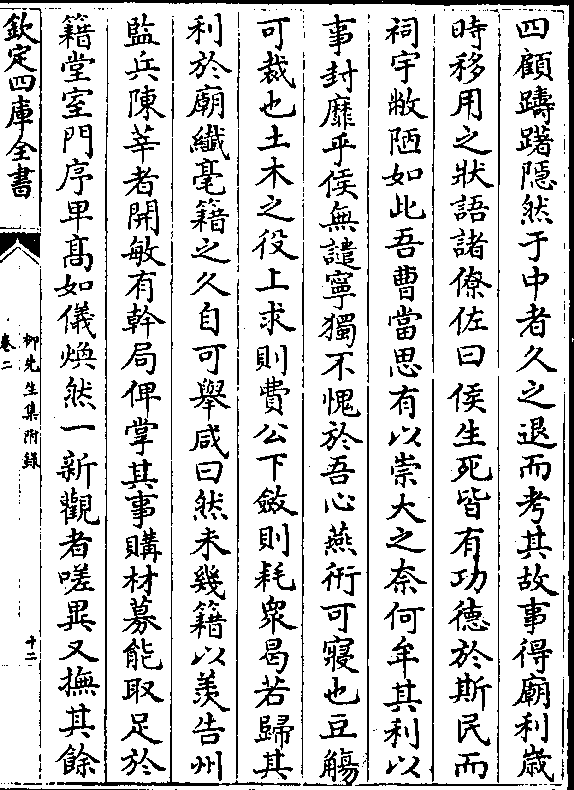 四顧躊躇隠然于中者久之退而考其故事得廟利歳
時移用之狀語諸僚佐曰侯生死皆有功德於斯民而
祠宇敝陋如此吾曹當思有以崇大之奈何牟其利以
事封靡乎侯無譴寧獨不愧於吾心燕衎可寢也豆觴
可裁也土木之役上求則費公下斂則耗衆曷若歸其
利於廟纖毫籍之久自可舉咸曰然未幾籍以羡告州
監兵陳莘者開敏有幹局俾掌其事購材募能取足於
籍堂室門序卑髙如儀煥然一新觀者嗟異又撫其餘
欽定四庫全書
柳先生集附錄
卷二
十二